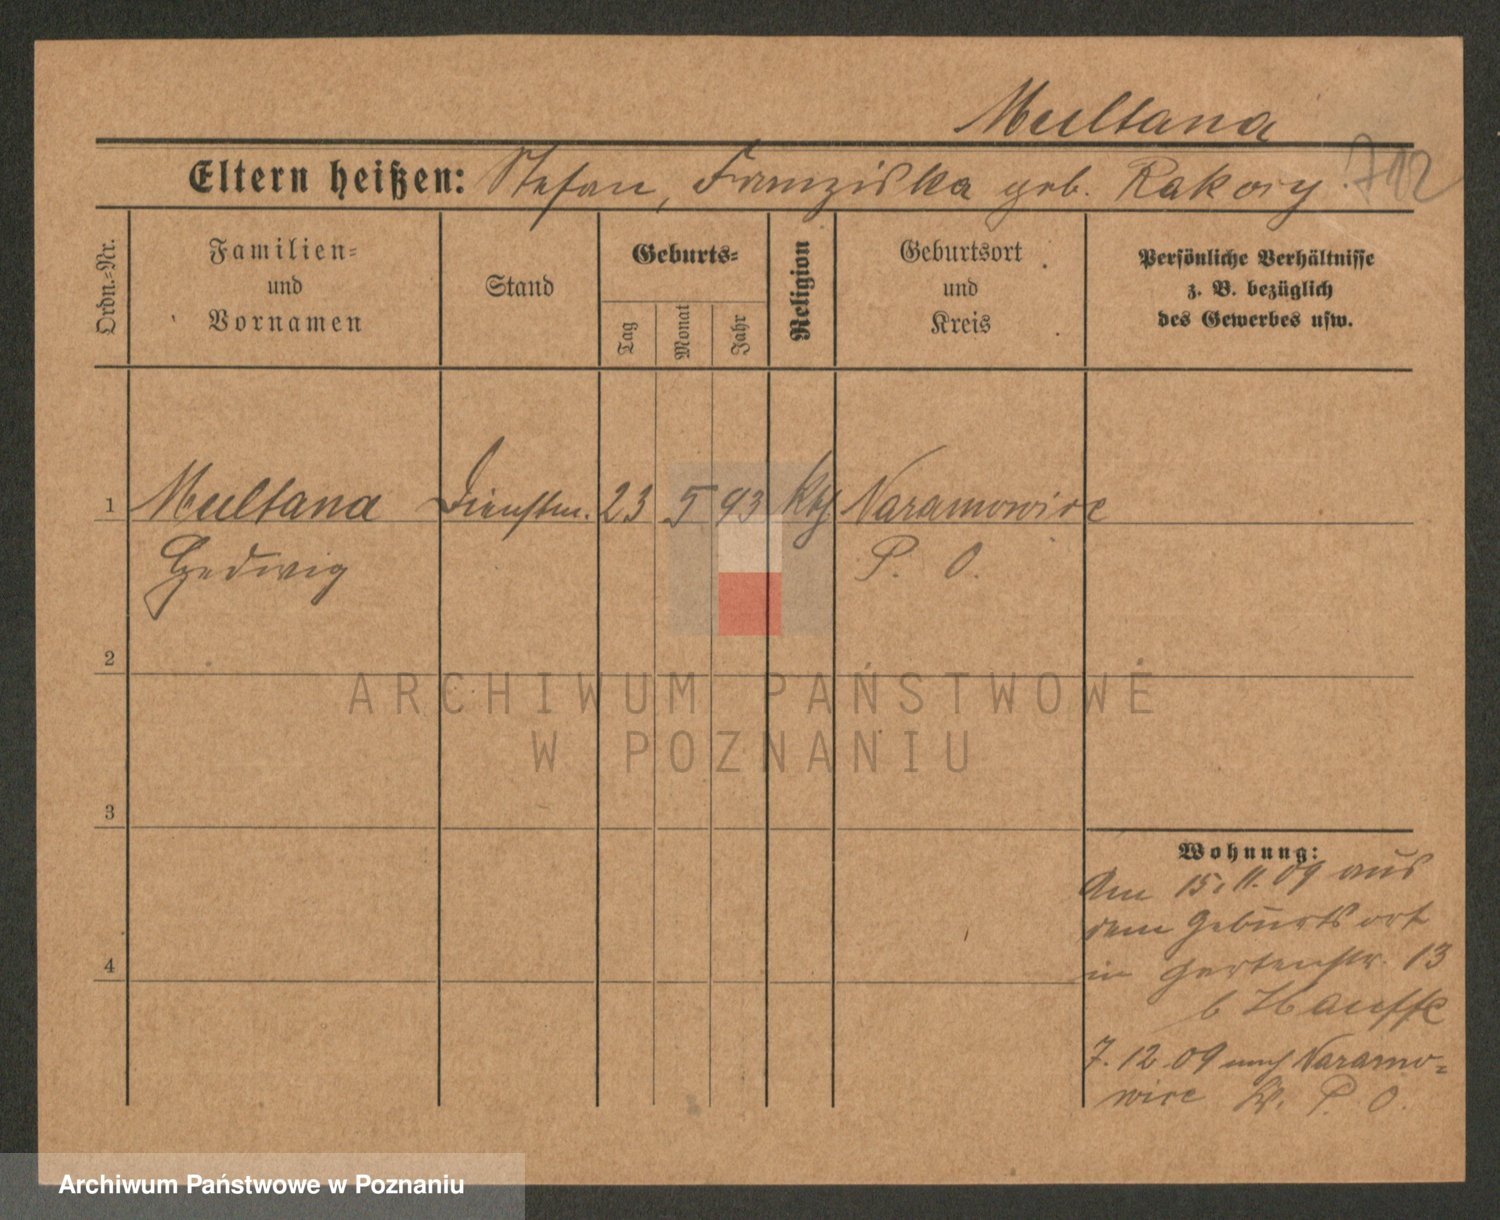 Multana
Eltern heißen: Stefan, Franziska geb. Rakosy 712
Ordn.-Nr.
Familien-
und
Vornamen
Stand
Geburts-
Tag
Monat
Jahr
Religion
Geburtsort
und
Kreis
Persönliche Verhältnisse
z. B. bezüglich
des Gewerbes usw.
1 Multana Dienstm. 23 5 93 kth Naramowice
Hedwig P. O.
2
3
4
Wohnung:
Am 15.11.09 aus
dem Geburtsort
in Gartenstr. 13
b Hauffe
7.12.09 nach Naramo-
wice Kr. P. O.
ARCHIWUM PAŃSTWOWE
W POZNANIU
Archiwum Państwowe w Poznaniu